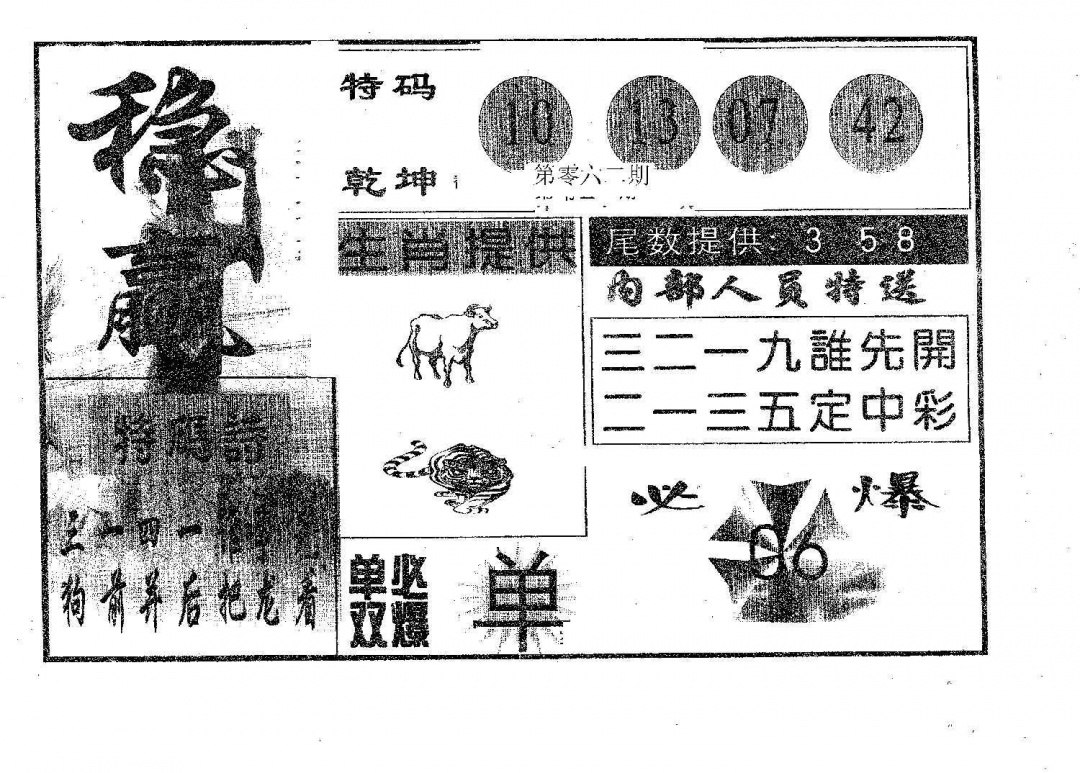 稳
赢
特码
10 13 07 42
乾坤
第零六二期
生肖提供
尾数提供: 3 58
内部人员特送
三二一九誰先開
二一三五定中彩
特碼詩
三一四一
狗前羊后把龙看
必 爆
06
单双
必爆
单